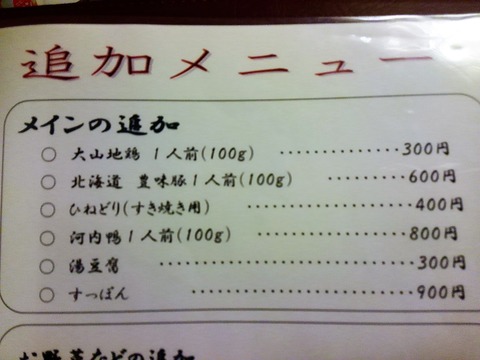 追加メニュー
メインの追加
○ 大山地鶏 1人前(100g) ・・・・・・・・・・・・・・300円
○ 北海道 豊味豚1人前(100g) ・・・・・・・・・・600円
○ ひねどり(すき焼き用) ・・・・・・・・・・・・・・・・・400円
○ 河内鴨1人前(100g) ・・・・・・・・・・・・・・・・800円
○ 湯豆腐 ・・・・・・・・・・・・・・・・・・・・・・・・・・300円
○ すっぽん ・・・・・・・・・・・・・・・・・・・・・・・900円
お野菜などの追加